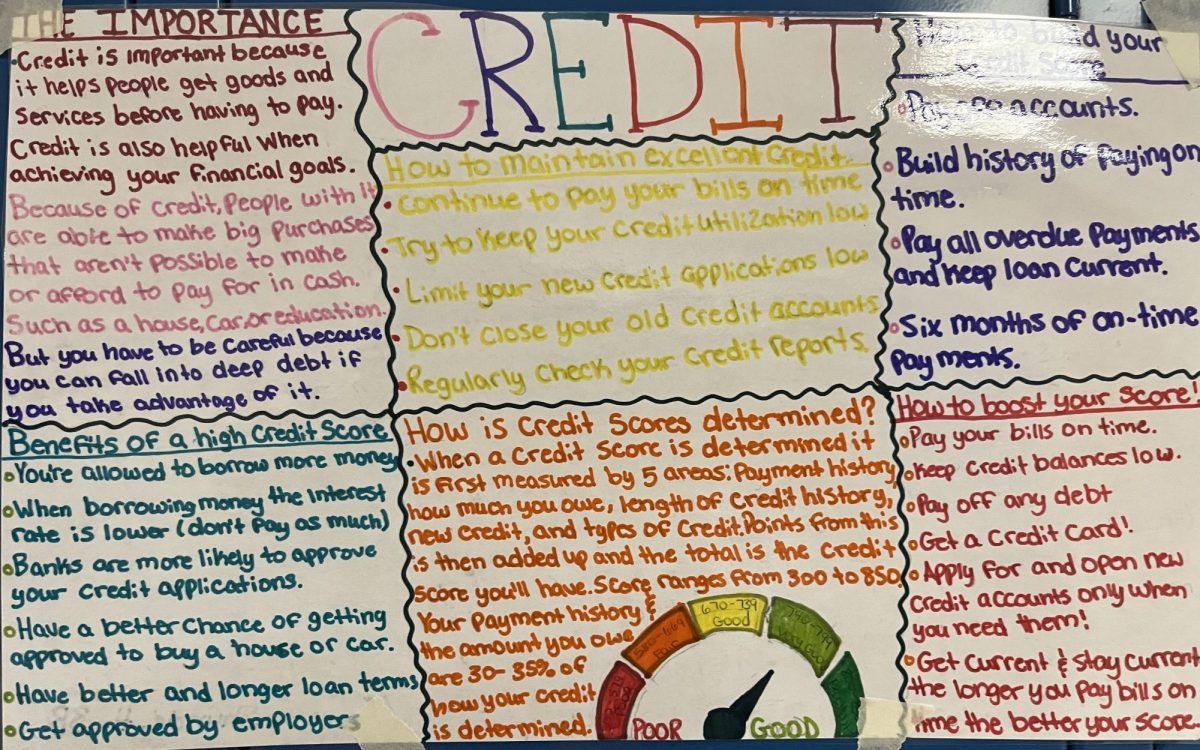 THE IMPORTANCE
•Credit is important because
it helps people get goods and
services before having to pay.
Credit is also helpful when
achieving your financial goals.
Because of credit, people with it
are able to make big purchases
that aren't possible to make
or afford to pay for in cash.
Such as a house, car, or education.
But you have to be careful because
you can fall into deep debt if
you take advantage of it.
CREDIT
How to maintain excellent Credit
• continue to pay your bills on time
• Try to keep your credit utilization low
• Limit your new credit applications low
• Don't close your old credit accounts
• Regularly check your credit reports.
How to build your
Credit Score
Pay off accounts.
Build history of paying on
time.
Pay all overdue payments
and keep loan current.
Six months of on-time
payments.
Benefits of a high Credit Score
You're allowed to borrow more money
When borrowing money the interest
rate is lower (don't pay as much)
Banks are more likely to approve
your credit applications.
Have a better chance of getting
approved to buy a house or car.
Have better and longer loan terms
Get approved by employers
How is Credit Scores determined?
•When a credit score is determined it
is first measured by 5 areas: Payment history,
how much you owe, length of credit history,
new credit, and types of credit. Points from this
is then added up and the total is the credit
score you'll have. Score ranges from 300 to 850
Your payment history &
the amount you owe
are 30-35% of
how your credit
is determined.
580-669
Fair
670-739
Good
POOR
GOOD
How to boost your score!
Pay your bills on time.
Keep credit balances low.
Pay off any debt
Get a credit card!
Apply for and open new
credit accounts only when
you need them!
Get current & stay current
the longer you pay bills on
time the better your score.